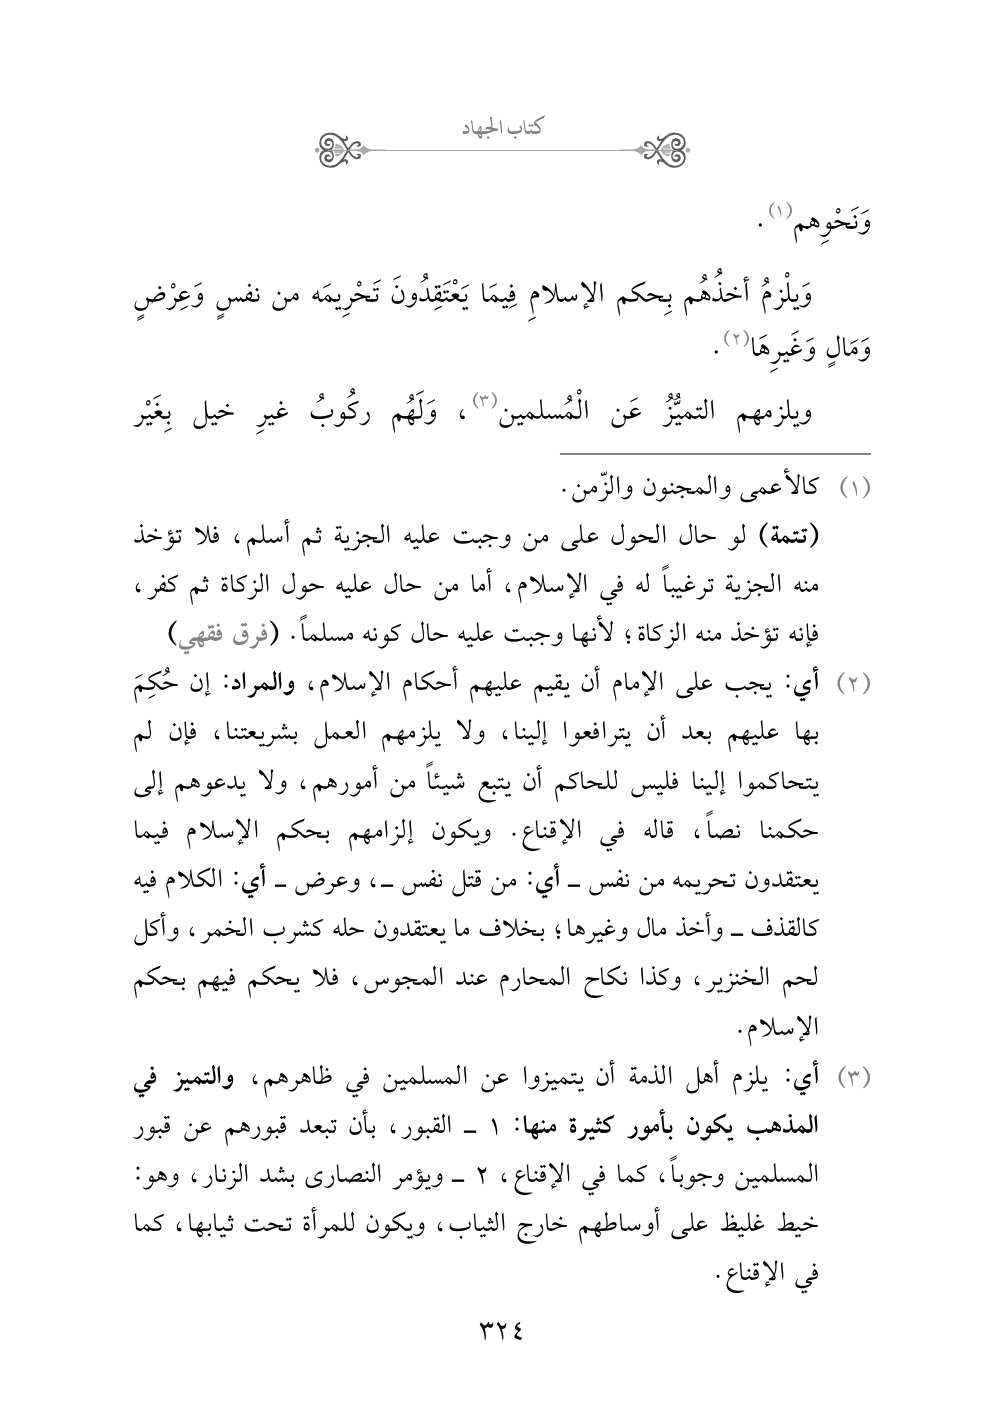 كتاب الجهاد
وَنَحْوِهم(١).
وَيلْزمُ أخذُهُم بِحكم الإسلامِ فِيمَا يَعْتَقِدُونَ تَحْرِيمَه من نفسٍ وَعِرْضٍ
وَمَالٍ وَغَيرِهَا(٢).
ويلزمهم التميُّزُ عَن الْمُسلمين(٣)، وَلَهُم ركُوبُ غيرِ خيل بِغَيْر
(١) كالأعمى والمجنون والزّمن.
(تتمة) لو حال الحول على من وجبت عليه الجزية ثم أسلم، فلا تؤخذ
منه الجزية ترغيباً له في الإسلام، أما من حال عليه حول الزكاة ثم كفر،
فإنه تؤخذ منه الزكاة؛ لأنها وجبت عليه حال كونه مسلماً. (فرق فقهي)
(٢) أي: يجب على الإمام أن يقيم عليهم أحكام الإسلام، والمراد: إن حُكِمَ
بها عليهم بعد أن يترافعوا إلينا، ولا يلزمهم العمل بشريعتنا، فإن لم
يتحاكموا إلينا فليس للحاكم أن يتبع شيئاً من أمورهم، ولا يدعوهم إلى
حكمنا نصاً، قاله في الإقناع. ويكون إلزامهم بحكم الإسلام فيما
يعتقدون تحريمه من نفس ـ أي: من قتل نفس ـ، وعرض ـ أي: الكلام فيه
كالقذف ـ وأخذ مال وغيرها؛ بخلاف ما يعتقدون حله كشرب الخمر، وأكل
لحم الخنزير، وكذا نكاح المحارم عند المجوس، فلا يحكم فيهم بحكم
الإسلام.
(٣) أي: يلزم أهل الذمة أن يتميزوا عن المسلمين في ظاهرهم، والتميز في
المذهب يكون بأمور كثيرة منها: ١ ـ القبور، بأن تبعد قبورهم عن قبور
المسلمين وجوباً، كما في الإقناع، ٢ ـ ويؤمر النصارى بشد الزنار، وهو:
خيط غليظ على أوساطهم خارج الثياب، ويكون للمرأة تحت ثيابها، كما
في الإقناع.
٣٢٤